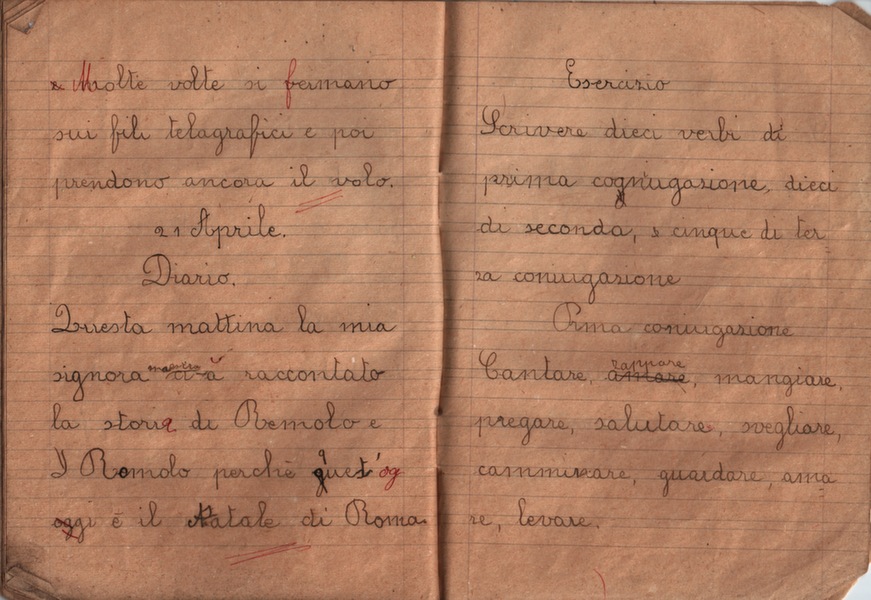 Molte volte si fermano
sui fili telagrafici e poi
prendono ancora il volo.
21 Aprile.
Diario.
Questa mattina la mia
signora maestra à raccontato
la storia di Remolo e
Romolo perchè quest'og
oggi è il Natale di Roma.
Esercizio
Scrivere dieci verbi di
prima cogniugasione, dieci
di seconda, e cinque di ter
za coniugasione
Prima coniugasione
zappare
Cantare, amare, mangiare,
pregare, salutare, svegliare,
camminare, guardare, ama
re, levare.